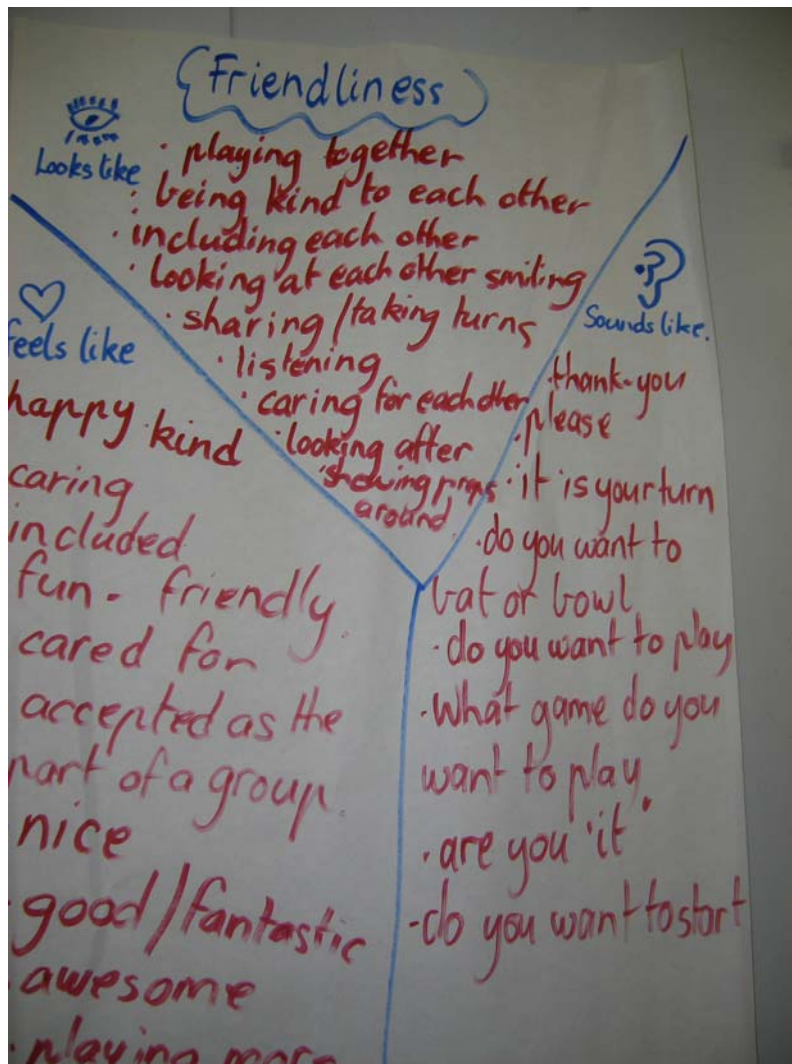 Friendliness
Looks like
· playing together
· being kind to each other
· including each other
· looking at each other smiling
· sharing/taking turns
· listening
· caring for each other
· looking after
· showing
around
feels like
happy kind
caring
included
fun - friendly
cared for
accepted as the
part of a group.
nice
· good/fantastic
· awesome
· playing more
Sounds like.
· thank-you
· please
· it is your turn
· do you want to
bat or bowl
· do you want to play
· What game do you
want to play
· are you "it"
- do you want to start